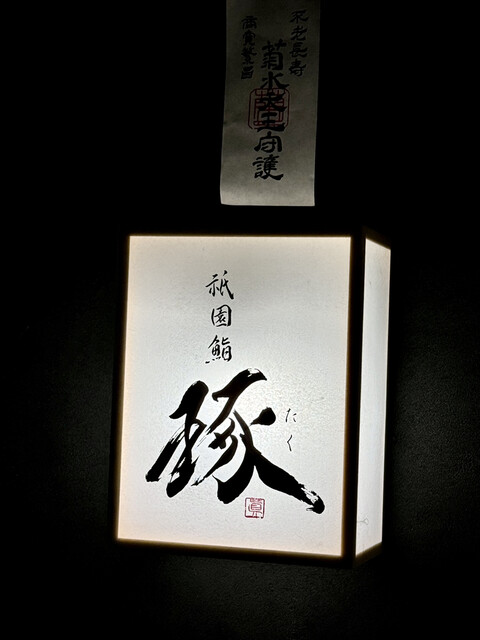 不老長寿
菊水
守護
祇園鮨
琢
たく